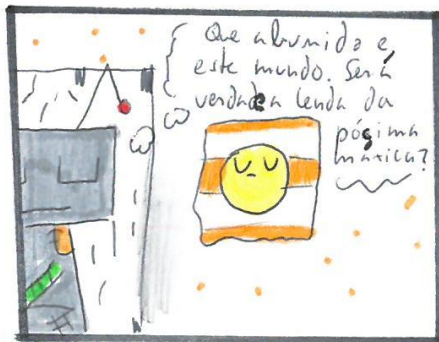 Que aburrido e,
este mundo. Será
verdade a lenda da
páxima
maxica?